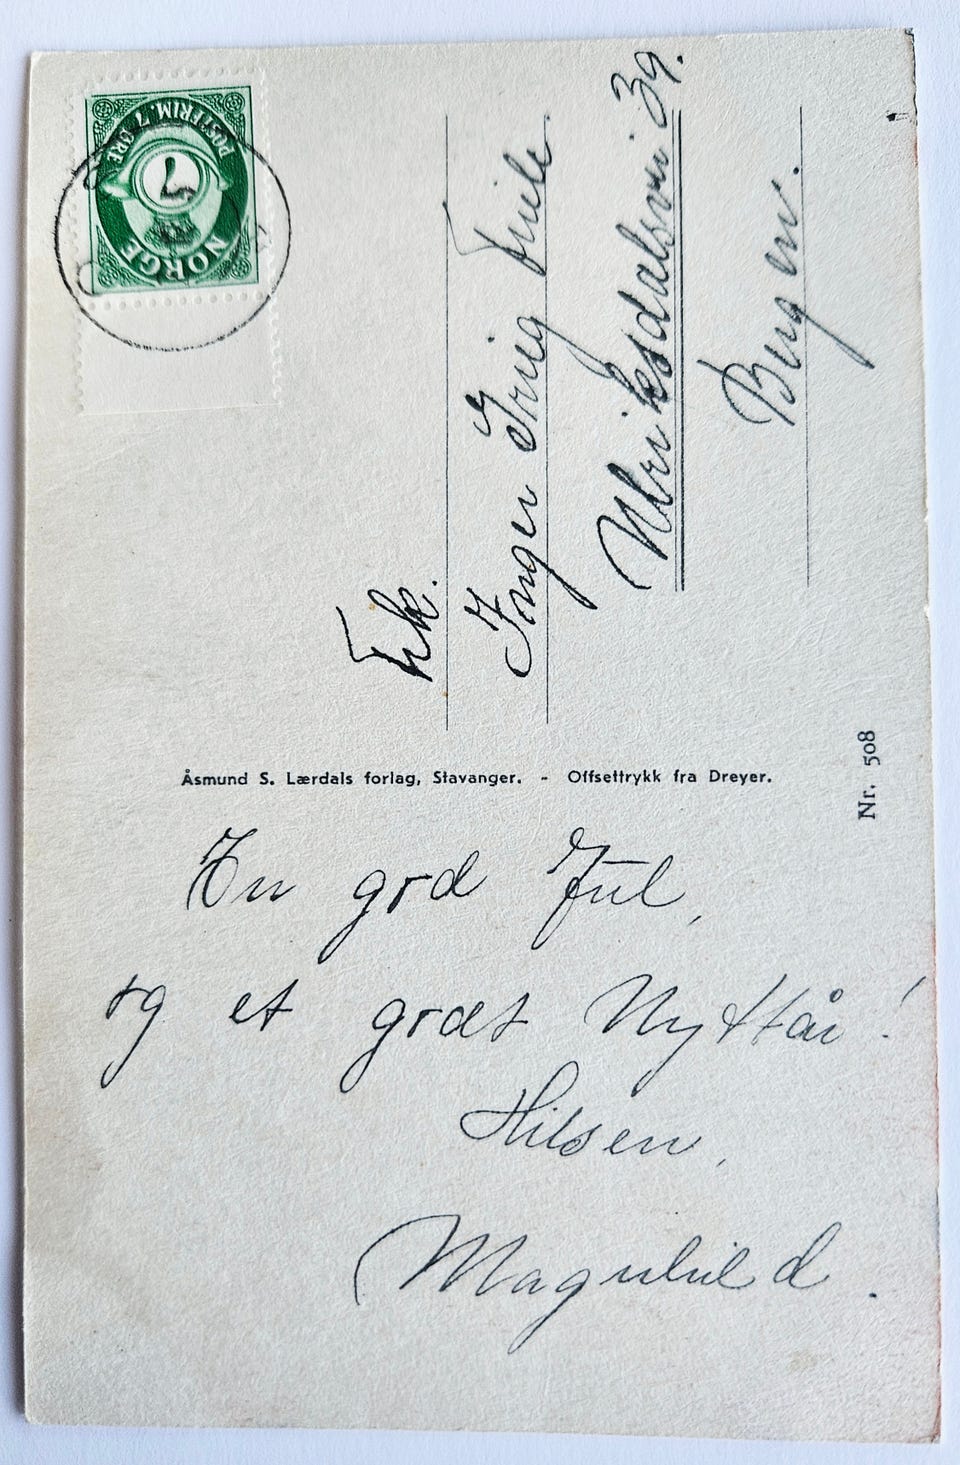 NORGE
POSTFRIM. 7 ØRE
7
Frk.
Inger Irug Friele
Ulriksdalsvei 39.
Bergen.
Åsmund S. Lærdals forlag, Stavanger. - Offsettrykk fra Dreyer.
Nr. 508
En god Jul,
og et godt Nyttår!
Hilsen,
Magnhild.